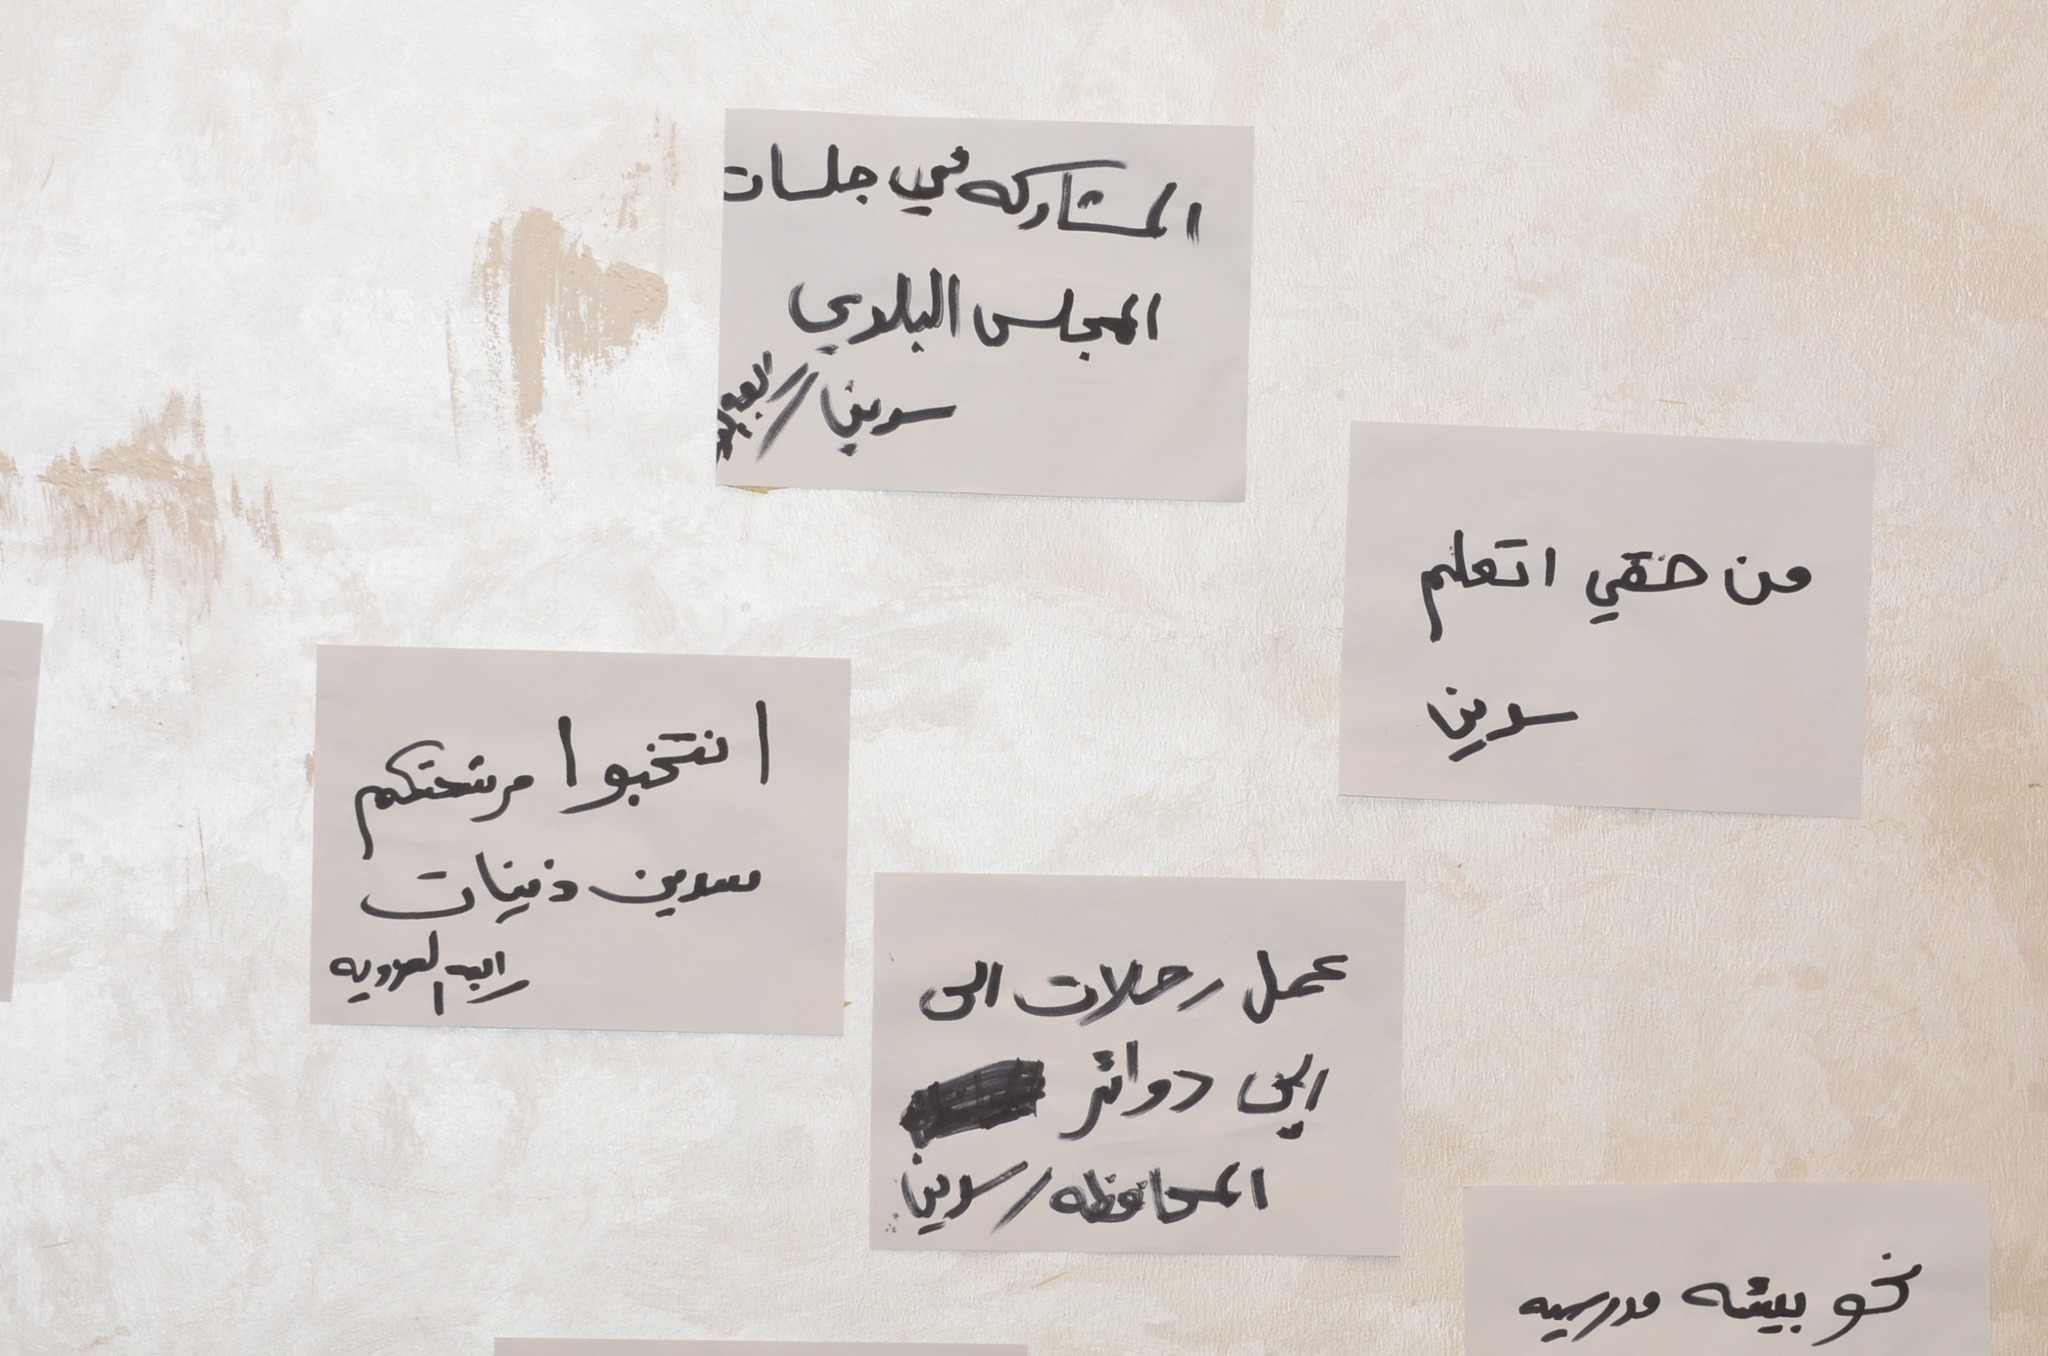 المشاركه في جلسات
المجلس البلدي
سدين /
من حقي اتعلم
سدين
انتخبوا مرشحتكم
سدين ذنيبات
رابعه العدويه
عمل رحلات الى
الى دوائر
المحافظه / سدين
نحو بيئه مدرسيه